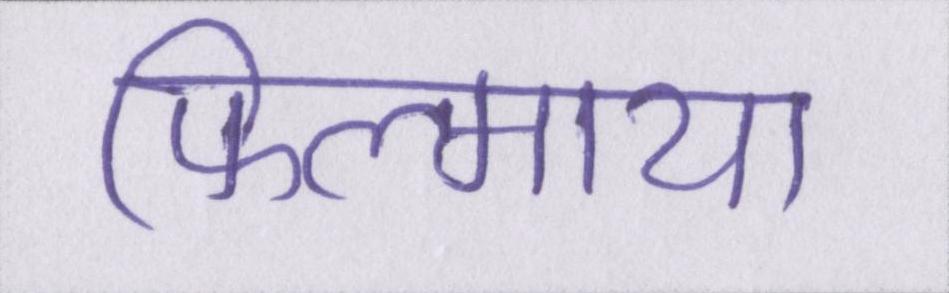 फिल्माया